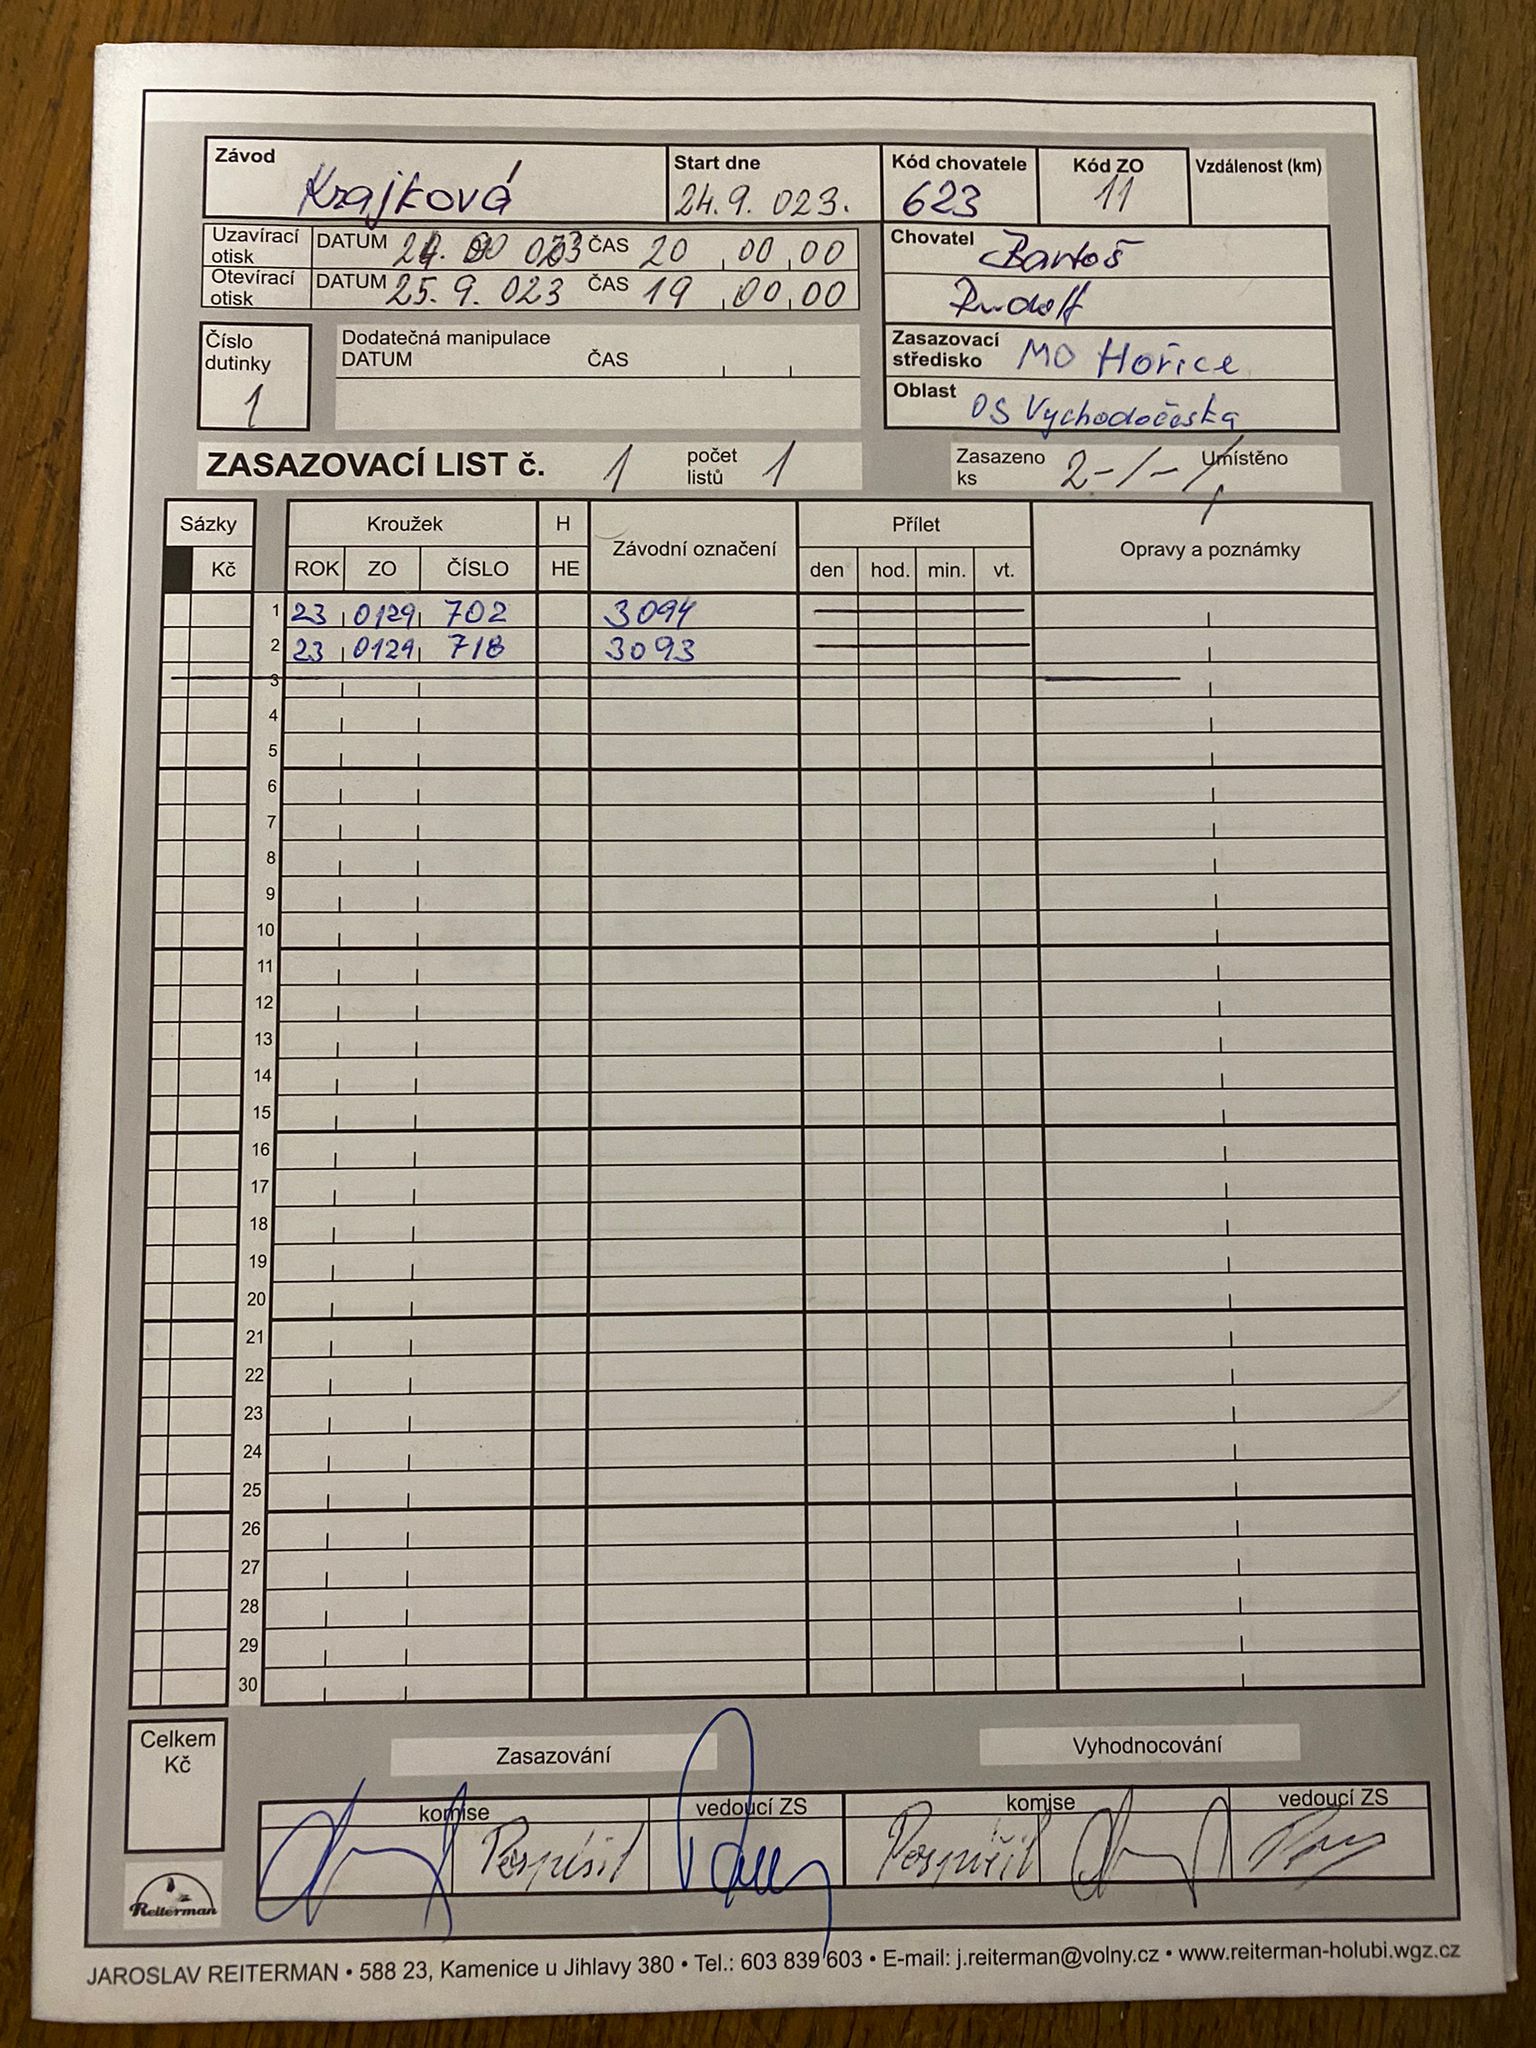 Závod Krajková Start dne 24.9. 023. Kód chovatele 623 Kód ZO 11 Vzdálenost (km)
Uzavírací otisk DATUM 24. ČAS 20 00 00
Otevírací otisk DATUM 25. 9. 023 ČAS 19 00 00
Chovatel Bartoš
Rudolf
Číslo dutinky 1
Dodatečná manipulace
DATUM ČAS
Zasazovací středisko MO Hořice
Oblast OS Vychodočeská
ZASAZOVACÍ LIST č. 1 počet listů 1
Zasazeno ks 2-/- Umístěno
Sázky Kroužek H Závodní označení Přílet Opravy a poznámky
Kč ROK ZO ČÍSLO HE den hod. min. vt.
1 23 0129 702 3094
2 23 0129 718 3093
3
4
5
6
7
8
9
10
11
12
13
14
15
16
17
18
19
20
21
22
23
24
25
26
27
28
29
30
Celkem Kč
Zasazování Vyhodnocování
komise vedoucí ZS komise vedoucí ZS
Pospíšil Pospíšil
Reiterman
JAROSLAV REITERMAN • 588 23, Kamenice u Jihlavy 380 • Tel.: 603 839 603 • E-mail: j.reiterman@volny.cz • www.reiterman-holubi.wgz.cz